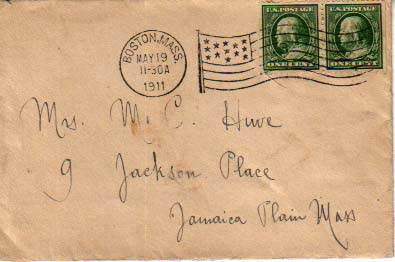 BOSTON, MASS.
MAY 19
11-30A
1911
U.S. POSTAGE
ONE CENT
U.S. POSTAGE
ONE CENT
Mrs. M. C. Huve
9 Jackson Place
Jamaica Plain Mass